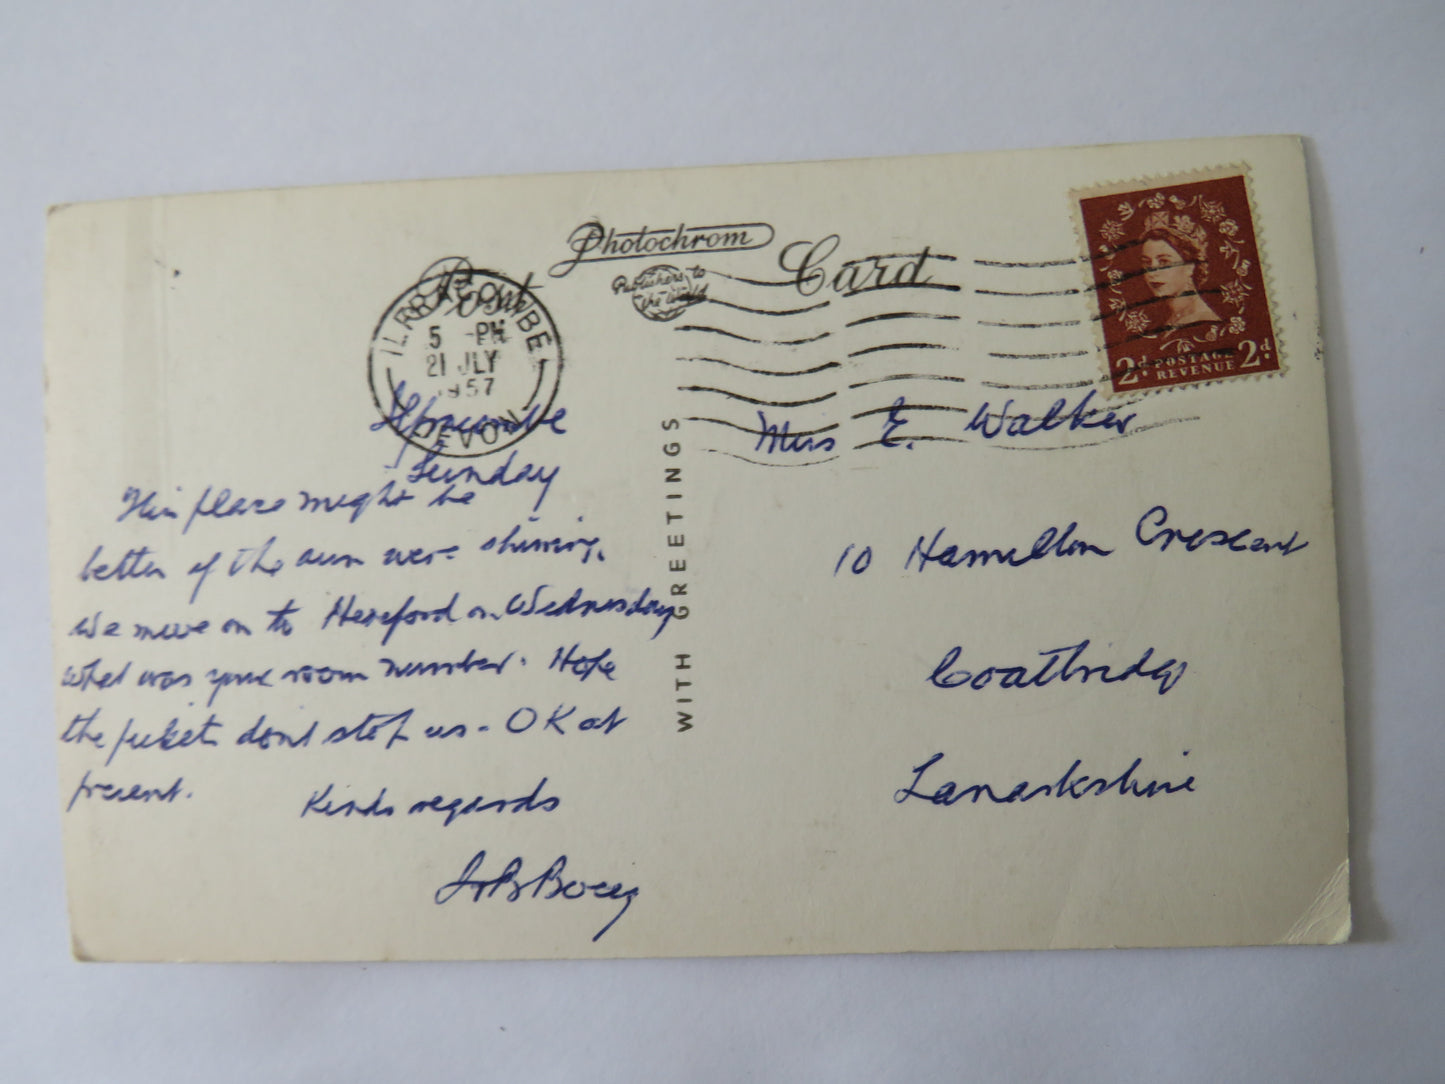 Photochrom
Publishers to
the World
Post Card
ILFRACOMBE
5 -PM
21 JLY
1957
DEVON
2d. POSTAGE 2d.
REVENUE
Ilfracombe
Sunday
This place might be
better if the sun were shining.
We move on to Hereford on Wednesday
What was your room number. Hope
the pickets dont stop us - OK at
present.
Kind regards
WITH GREETINGS
E. Walker
10 Hamilton Crescent
Coatbridge
Lanarkshire